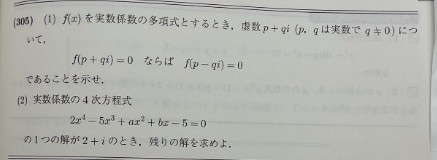 (305) (1) f(x) を実数係数の多項式とするとき, 虚数 p + qi (p, q は実数で q ≠ 0) につ
いて,
f(p + qi) = 0 ならば f(p − qi) = 0
であることを示せ.
(2) 実数係数の 4 次方程式
2x⁴ − 5x³ + ax² + bx − 5 = 0
の 1 つの解が 2 + i のとき, 残りの解を求めよ.